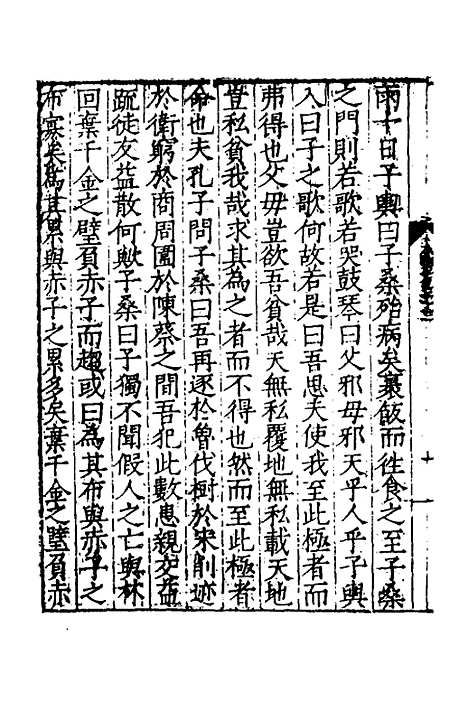 雨十日子輿曰子桑殆病矣裹飯而徃食之至子桑
之門則若歌若哭鼓琴曰父邪母邪天乎人乎子輿
入曰子之歌何故若是曰吾思夫使我至此極者而
弗得也父母豈欲吾貧哉天無私覆地無私載天地
豈私貧我哉求其為之者而不得也然而至此極者
命也夫孔子問子桑曰吾再逐於魯伐樹於宋削迹
於衛窮於商周圍於陳蔡之間吾犯此數患親交益
䟽徒友益散何歟子桑曰子獨不聞假人之亡與林
回棄千金之璧負赤子而趨或曰為其布與赤子之
布寡矣為其累與赤子之累多矣棄千金之璧負赤
十一